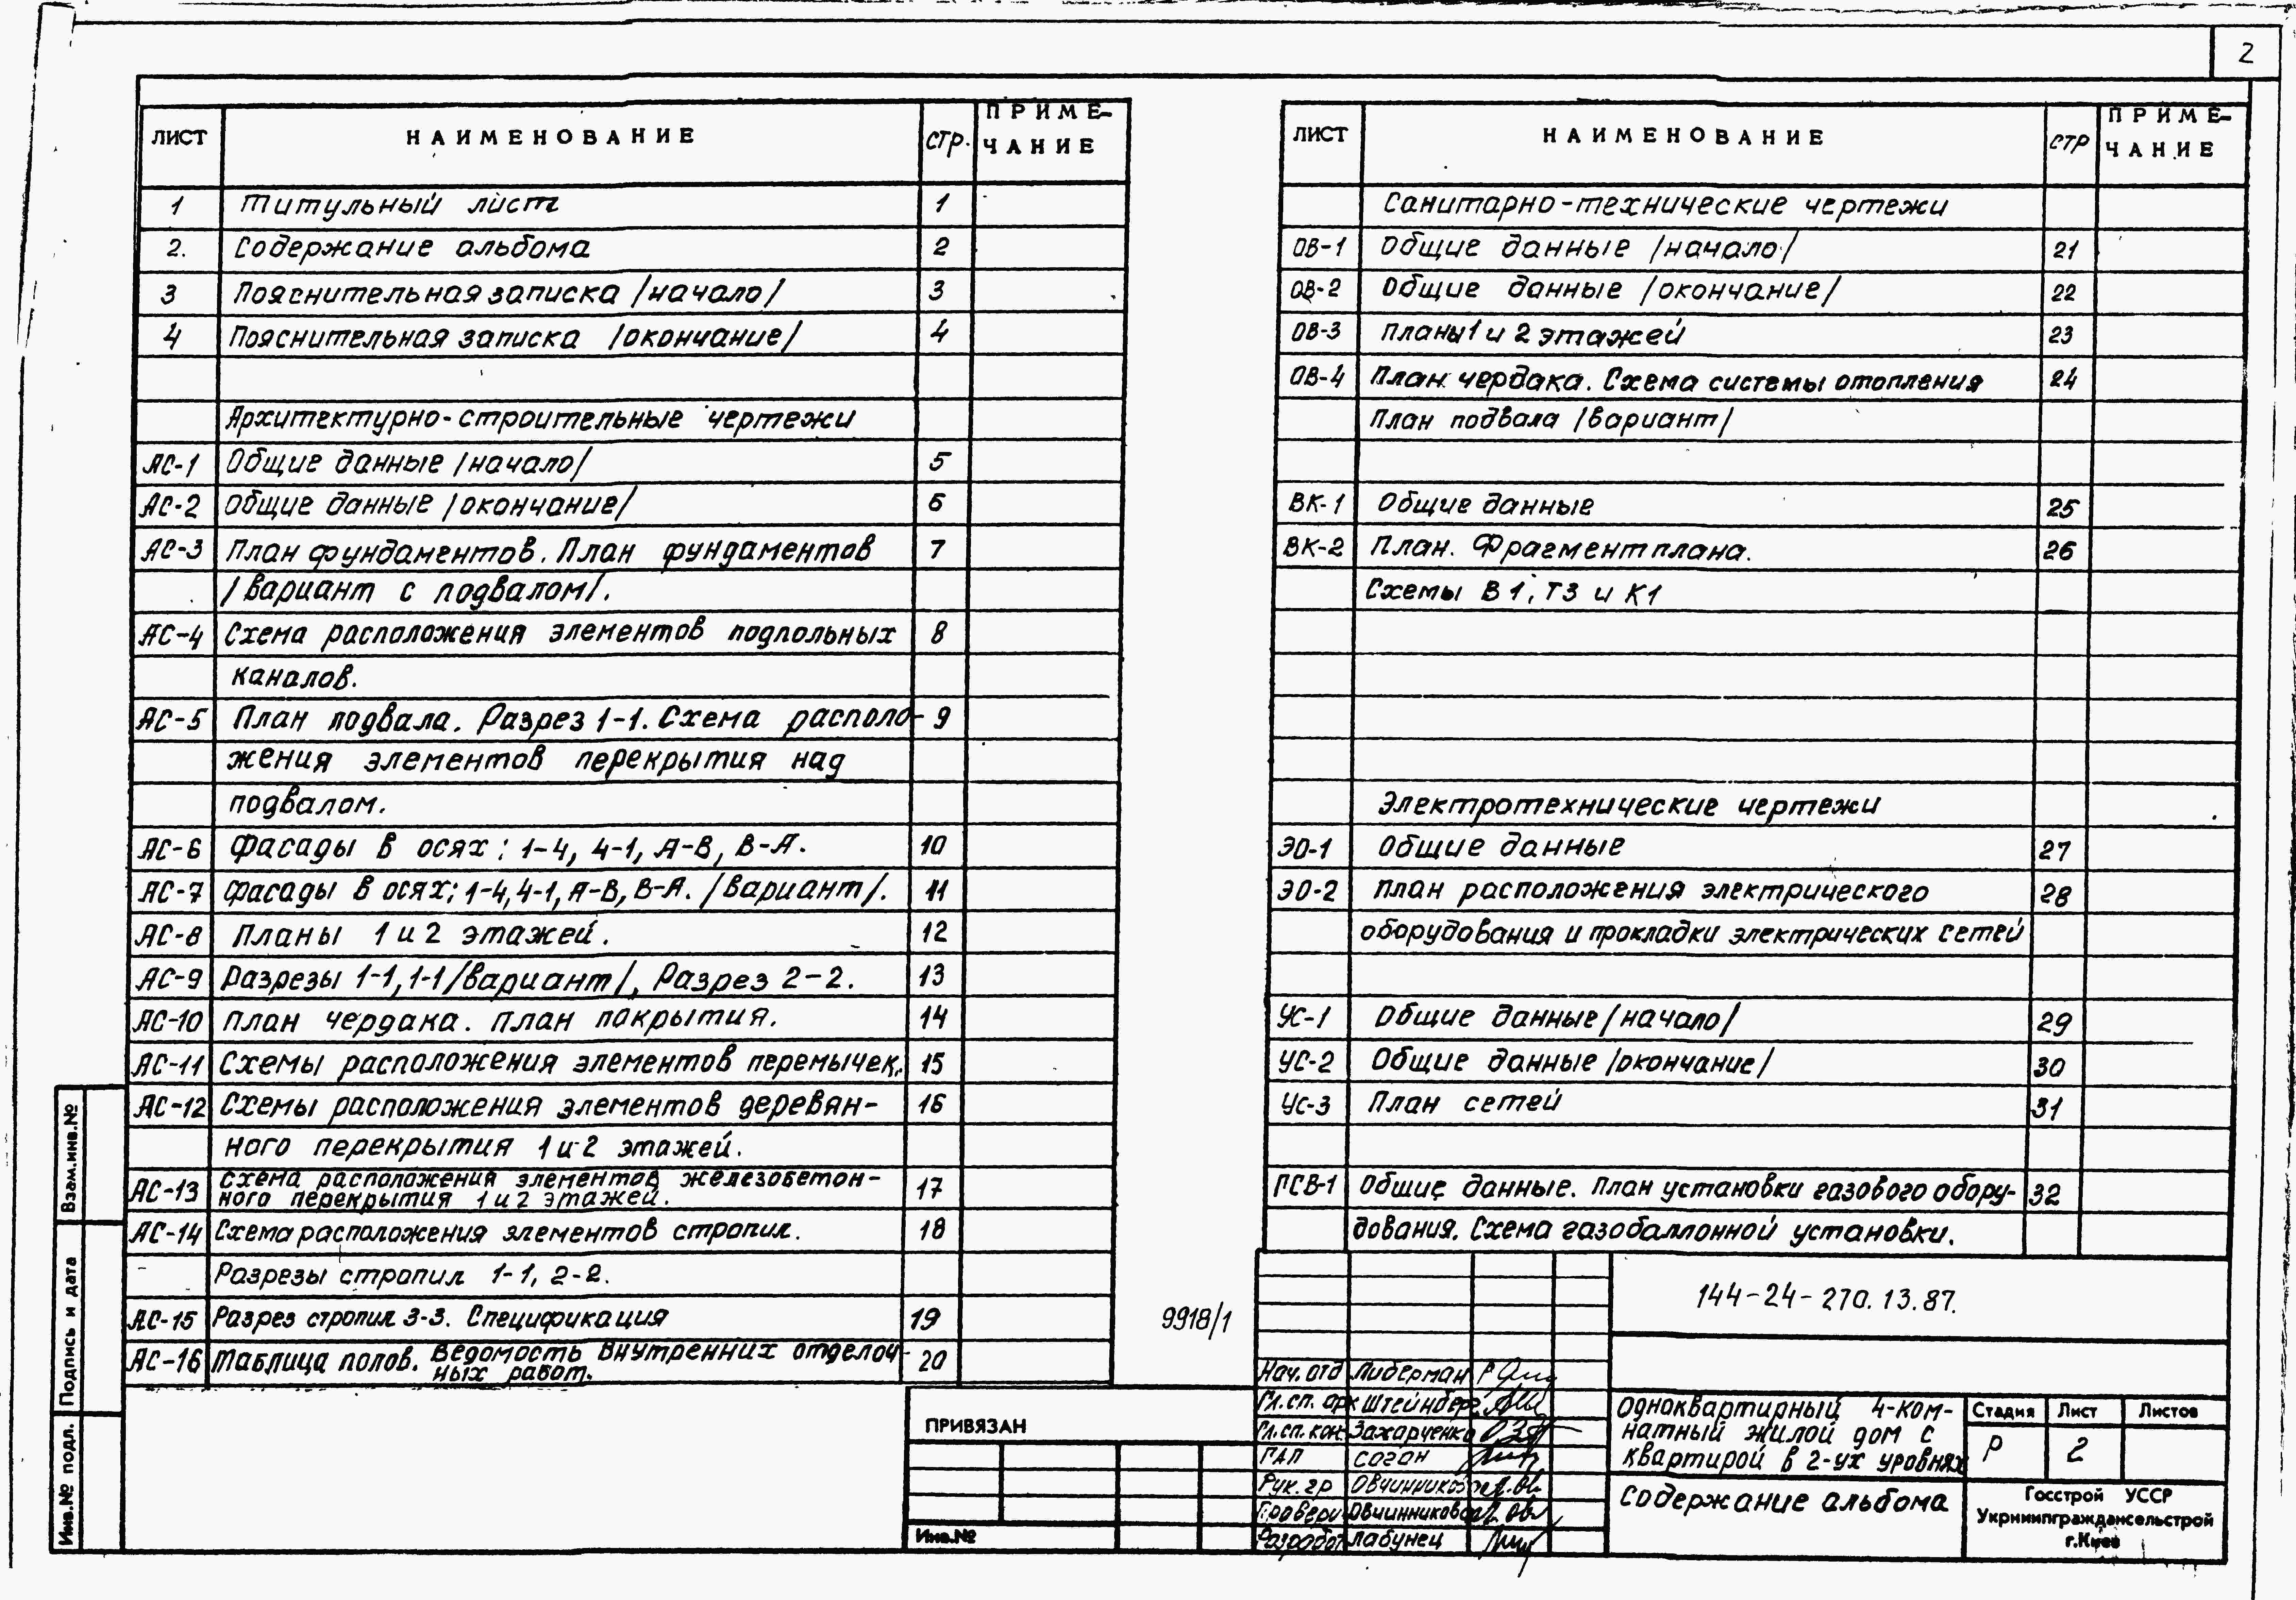 2
ЛИСТ НАИМЕНОВАНИЕ СТР. ПРИМЕ-
ЧАНИЕ
1 Титульный лист 1
2. Содержание альбома 2
3 Пояснительная записка /начало/ 3
4 Пояснительная записка /окончание/ 4
Архитектурно-строительные чертежи
АС-1 Общие данные /начало/ 5
АС-2 Общие данные /окончание/ 6
АС-3 План фундаментов. План фундаментов 7
/вариант с подвалом/.
АС-4 Схема расположения элементов подпольных 8
каналов.
АС-5 План подвала. Разрез 1-1. Схема располо- 9
жения элементов перекрытия над
подвалом.
АС-6 Фасады в осях: 1-4, 4-1, А-В, В-А. 10
АС-7 Фасады в осях; 1-4, 4-1, А-В, В-А. /вариант/. 11
АС-8 Планы 1 и 2 этажей. 12
АС-9 Разрезы 1-1, 1-1 /вариант/, Разрез 2-2. 13
АС-10 План чердака. План покрытия. 14
АС-11 Схемы расположения элементов перемычек. 15
АС-12 Схемы расположения элементов деревян- 16
ного перекрытия 1 и 2 этажей.
АС-13 Схема расположения элементов железобетон- 17
ного перекрытия 1 и 2 этажей.
АС-14 Схема расположения элементов стропил. 18
Разрезы стропил 1-1, 2-2.
АС-15 Разрез стропил 3-3. Спецификация 19
АС-16 Таблица полов. Ведомость внутренних отделоч- 20
ных работ.
ЛИСТ НАИМЕНОВАНИЕ СТР ПРИМЕ-
ЧАНИЕ
Санитарно-технические чертежи
ОВ-1 Общие данные /начало/ 21
ОВ-2 Общие данные /окончание/ 22
ОВ-3 Планы 1 и 2 этажей 23
ОВ-4 План чердака. Схема системы отопления 24
План подвала /вариант/
ВК-1 Общие данные 25
ВК-2 План. Фрагмент плана. 26
Схемы В1, Т3 и К1
Электротехнические чертежи
ЭО-1 Общие данные 27
ЭО-2 План расположения электрического 28
оборудования и прокладки электрических сетей
УС-1 Общие данные /начало/ 29
УС-2 Общие данные /окончание/ 30
УС-3 План сетей 31
ГСВ-1 Общие данные. План установки газового обору- 32
дования. Схема газобаллонной установки.
9918/1
144-24-270.13.87.
Нач. отд Либерман
Гл. сп. арх Штейнберг
Гл. сп. кон. Захарченко
ГАП Соган
Рук. гр Овчинников
Провери Овчинникова
Разработ Лабунец
Одноквартирный 4-ком-
натный жилой дом с
квартирой в 2-ух уровнях
Стадия Лист Листов
Р 2
Содержание альбома
Госстрой УССР
Укрниипграждансельстрой
г.Киев
ПРИВЯЗАН
Инв.№
Взам.инв.№
Подпись и дата
Инв.№ подл.